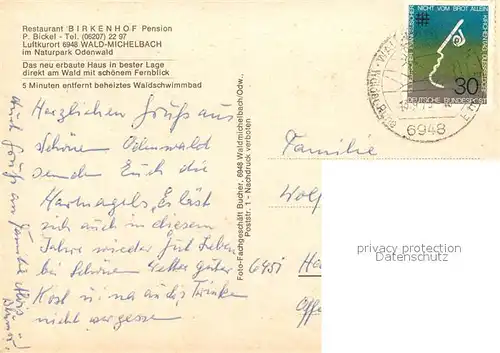 Restaurant 'BIRKENHOF' Pension
P. Bickel - Tel. (06207) 22 97
Luftkurort 6948 WALD-MICHELBACH
im Naturpark Odenwald
Das neu erbaute Haus in bester Lage
direkt am Wald mit schönem Fernblick
5 Minuten entfernt beheiztes Waldschwimmbad
Herzlichen Gruß aus
schönen Odenwald
senden Euch die
Es läst
sich auch in diesem
Jahre wieder gut Leben
bei schönen Wetter guter
Kost u. na andres Trinken
nicht vergessen
Auch Gruß an Familie
Foto-Fachgeschäft Bucher, 6948 Waldmichelbach/Odw.,
Poststr. 1 - Nachdruck verboten
NICHT VOM BROT ALLEIN
30
DEUTSCHE BUNDESPOST
6948
Familie
Wolf
6451
privacy protection
Datenschutz